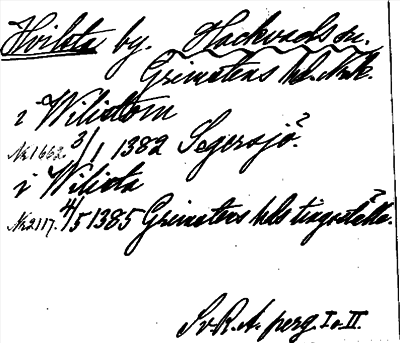 Hvilsta by. Hackvads sn.
Grimstens hd. Nrk.
i Wilistom
Nr 1662. 3/1 1382 Segersjö?
i Wilista
Nr 2117. 4/5 1385 Grimstens hds tingställe?
Sv. R. A. perg. I o. II.